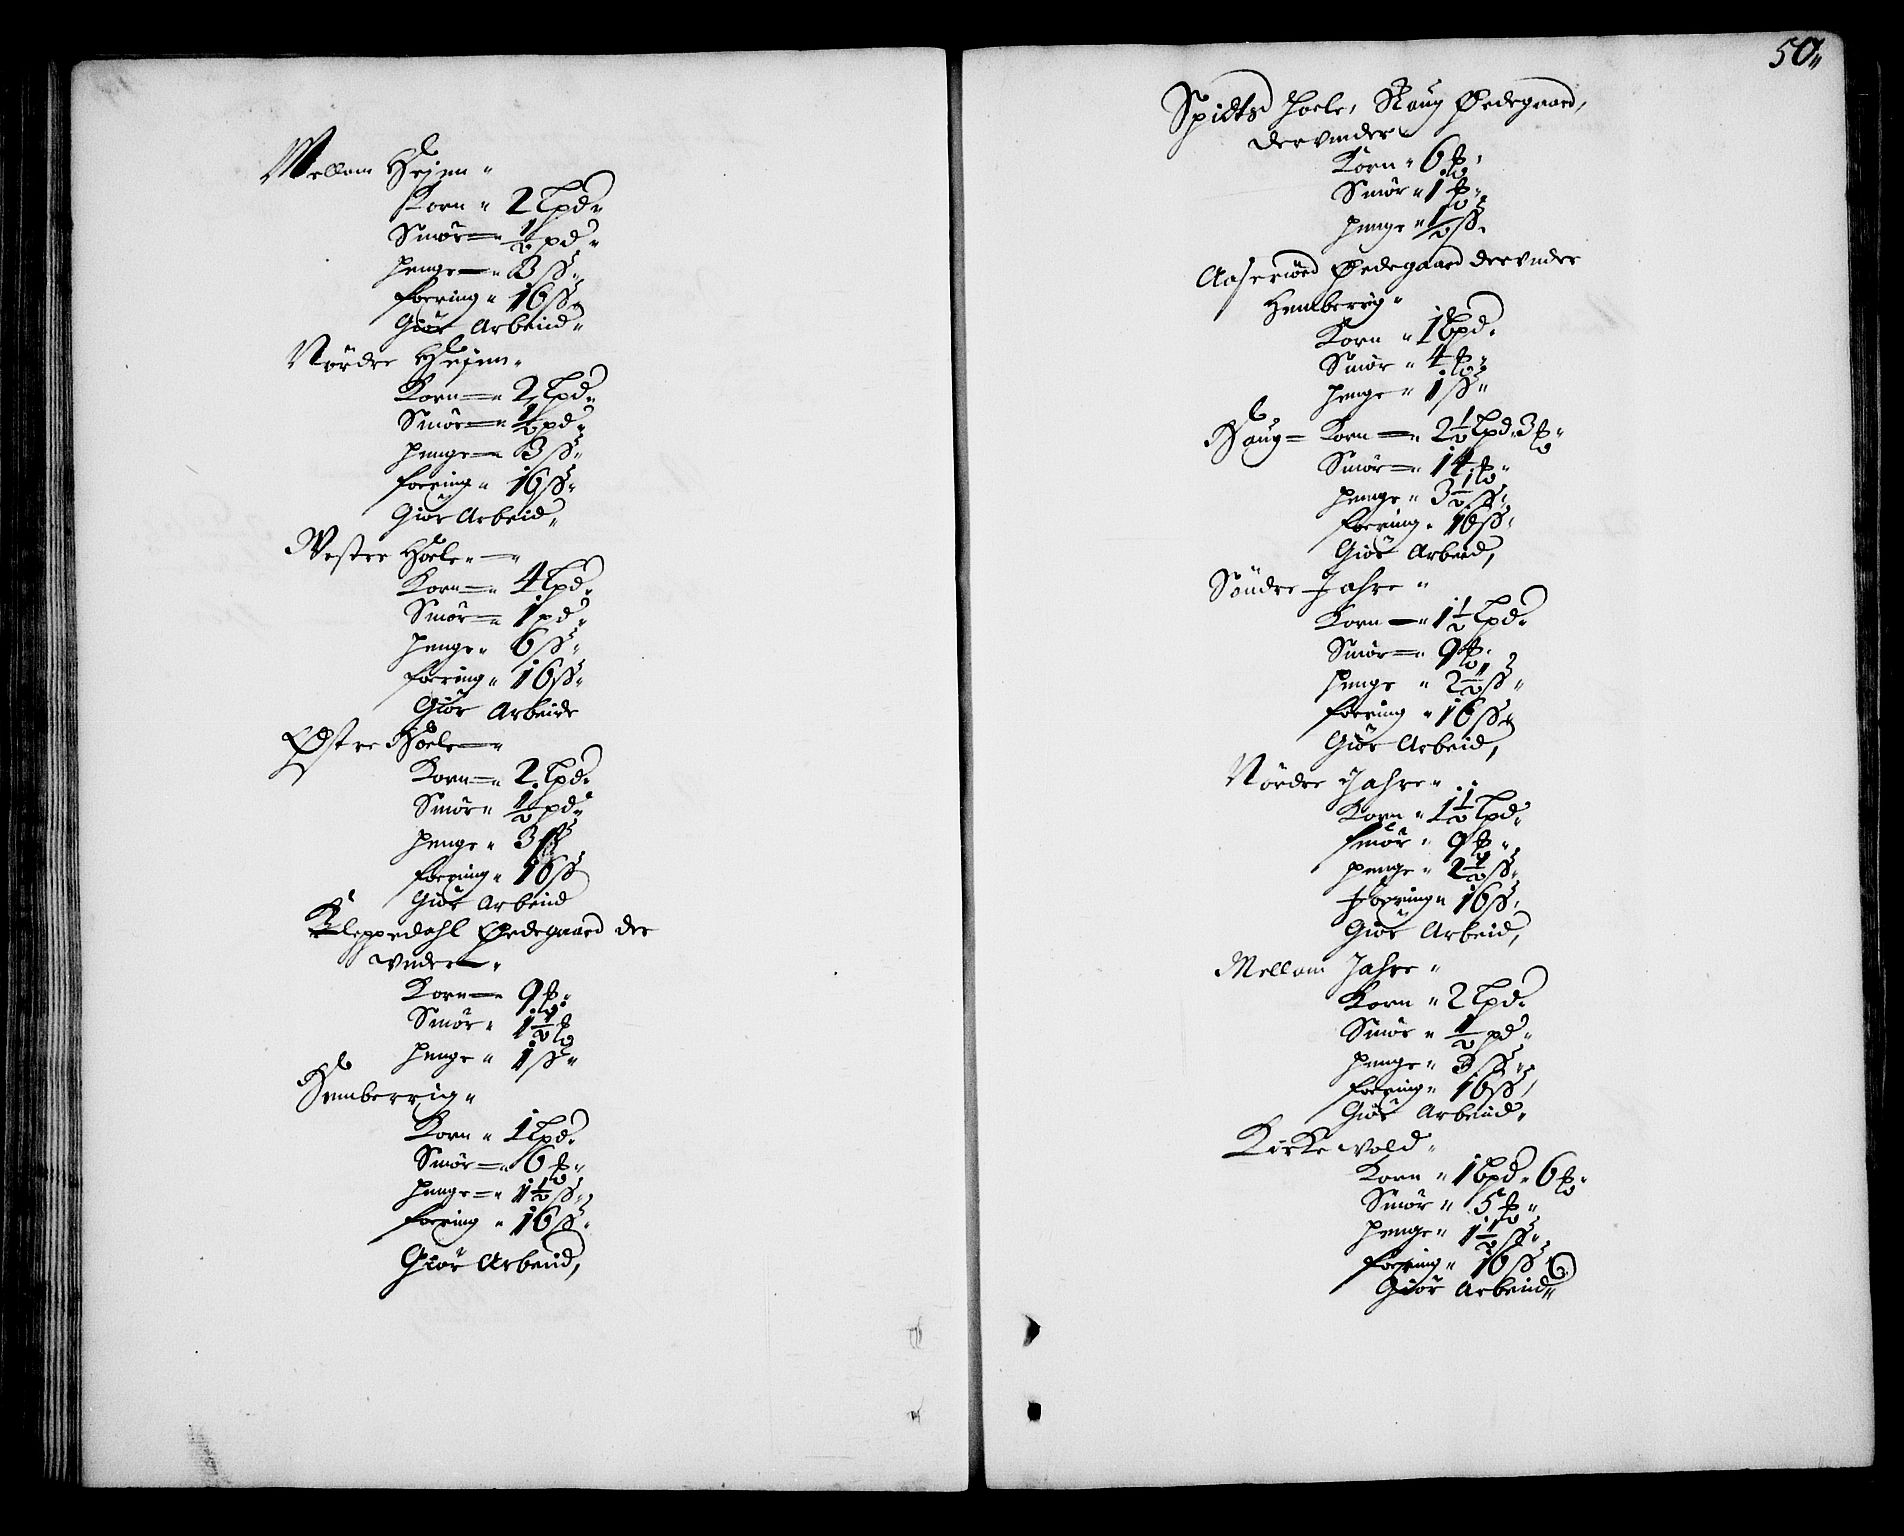 Mellom Hejen "
Korn " 2 Lpd "
Smør = " ½ pd "
Penge = " 3 ß "
foering " 16 ß "
Giör Arbeid "
Nördre Hejem "
Korn = " 2 Lpd "
Smör = " ½ pd "
Penge = 3 ß "
foering " 16 ß "
Giör Arbeid "
Vestre Hoele "
Korn = " 4 Lpd "
Smör = " 1 pd "
Penge " 6 ß "
foering " 16 ß "
Giör Arbeide
Östre Hoele "
Korn = " 2 Lpd "
Smör " ½ pd "
Penge " 3 ß
foering " 16 ß
Giör Arbeid
Kleppedahl Ødegaard der
vnder "
Korn = 9 ℔ "
Smör " 1½ ℔
Penge " 1 ß "
Hemberrig "
Korn " 1 Lpd "
Smör = " 6 ℔ "
Penge = " 1½ ß "
foering " 16 ß "
Giör Arbeid,
50 "
Spidts Hoele, Skoug Ødegaard,
der vnder
Korn " 6 ℔ "
Smör " 1 ℔ "
Penge " ½ ß "
Aaseröed Ødegaard dervnder
Hemberrig "
Korn " 1 Lpd "
Smör " 4 ℔ "
Penge " 1 ß "
Houg = Korn = " 2½ Lpd " 3 ℔ "
Smör = " 14 ℔ "
Penge " 3½ ß "
foering " 16 ß "
Giör Arbeid,
Söndre Jahre "
Korn = " 1½ Lpd "
Smör = " 9 ℔ "
Penge " 2½ ß "
foering " 16 ß "
Giör Arbeid,
Nördre Jahre "
Korn " 1½ Lpd "
Smör " 9 ℔ "
Penge " 2½ ß "
Foering " 16 ß "
Giör Arbeid,
Mellom Jahre "
Korn " 2 Lpd "
Smör " ½ pd "
Penge " 3 ß "
foering " 16 ß "
Giör Arbeid "
Kirkevold "
Korn " 1 Lpd " 6 ℔ "
Smör " 5 ℔ "
Penge " 1½ ß "
foering " 16 ß
Giör Arbeid "